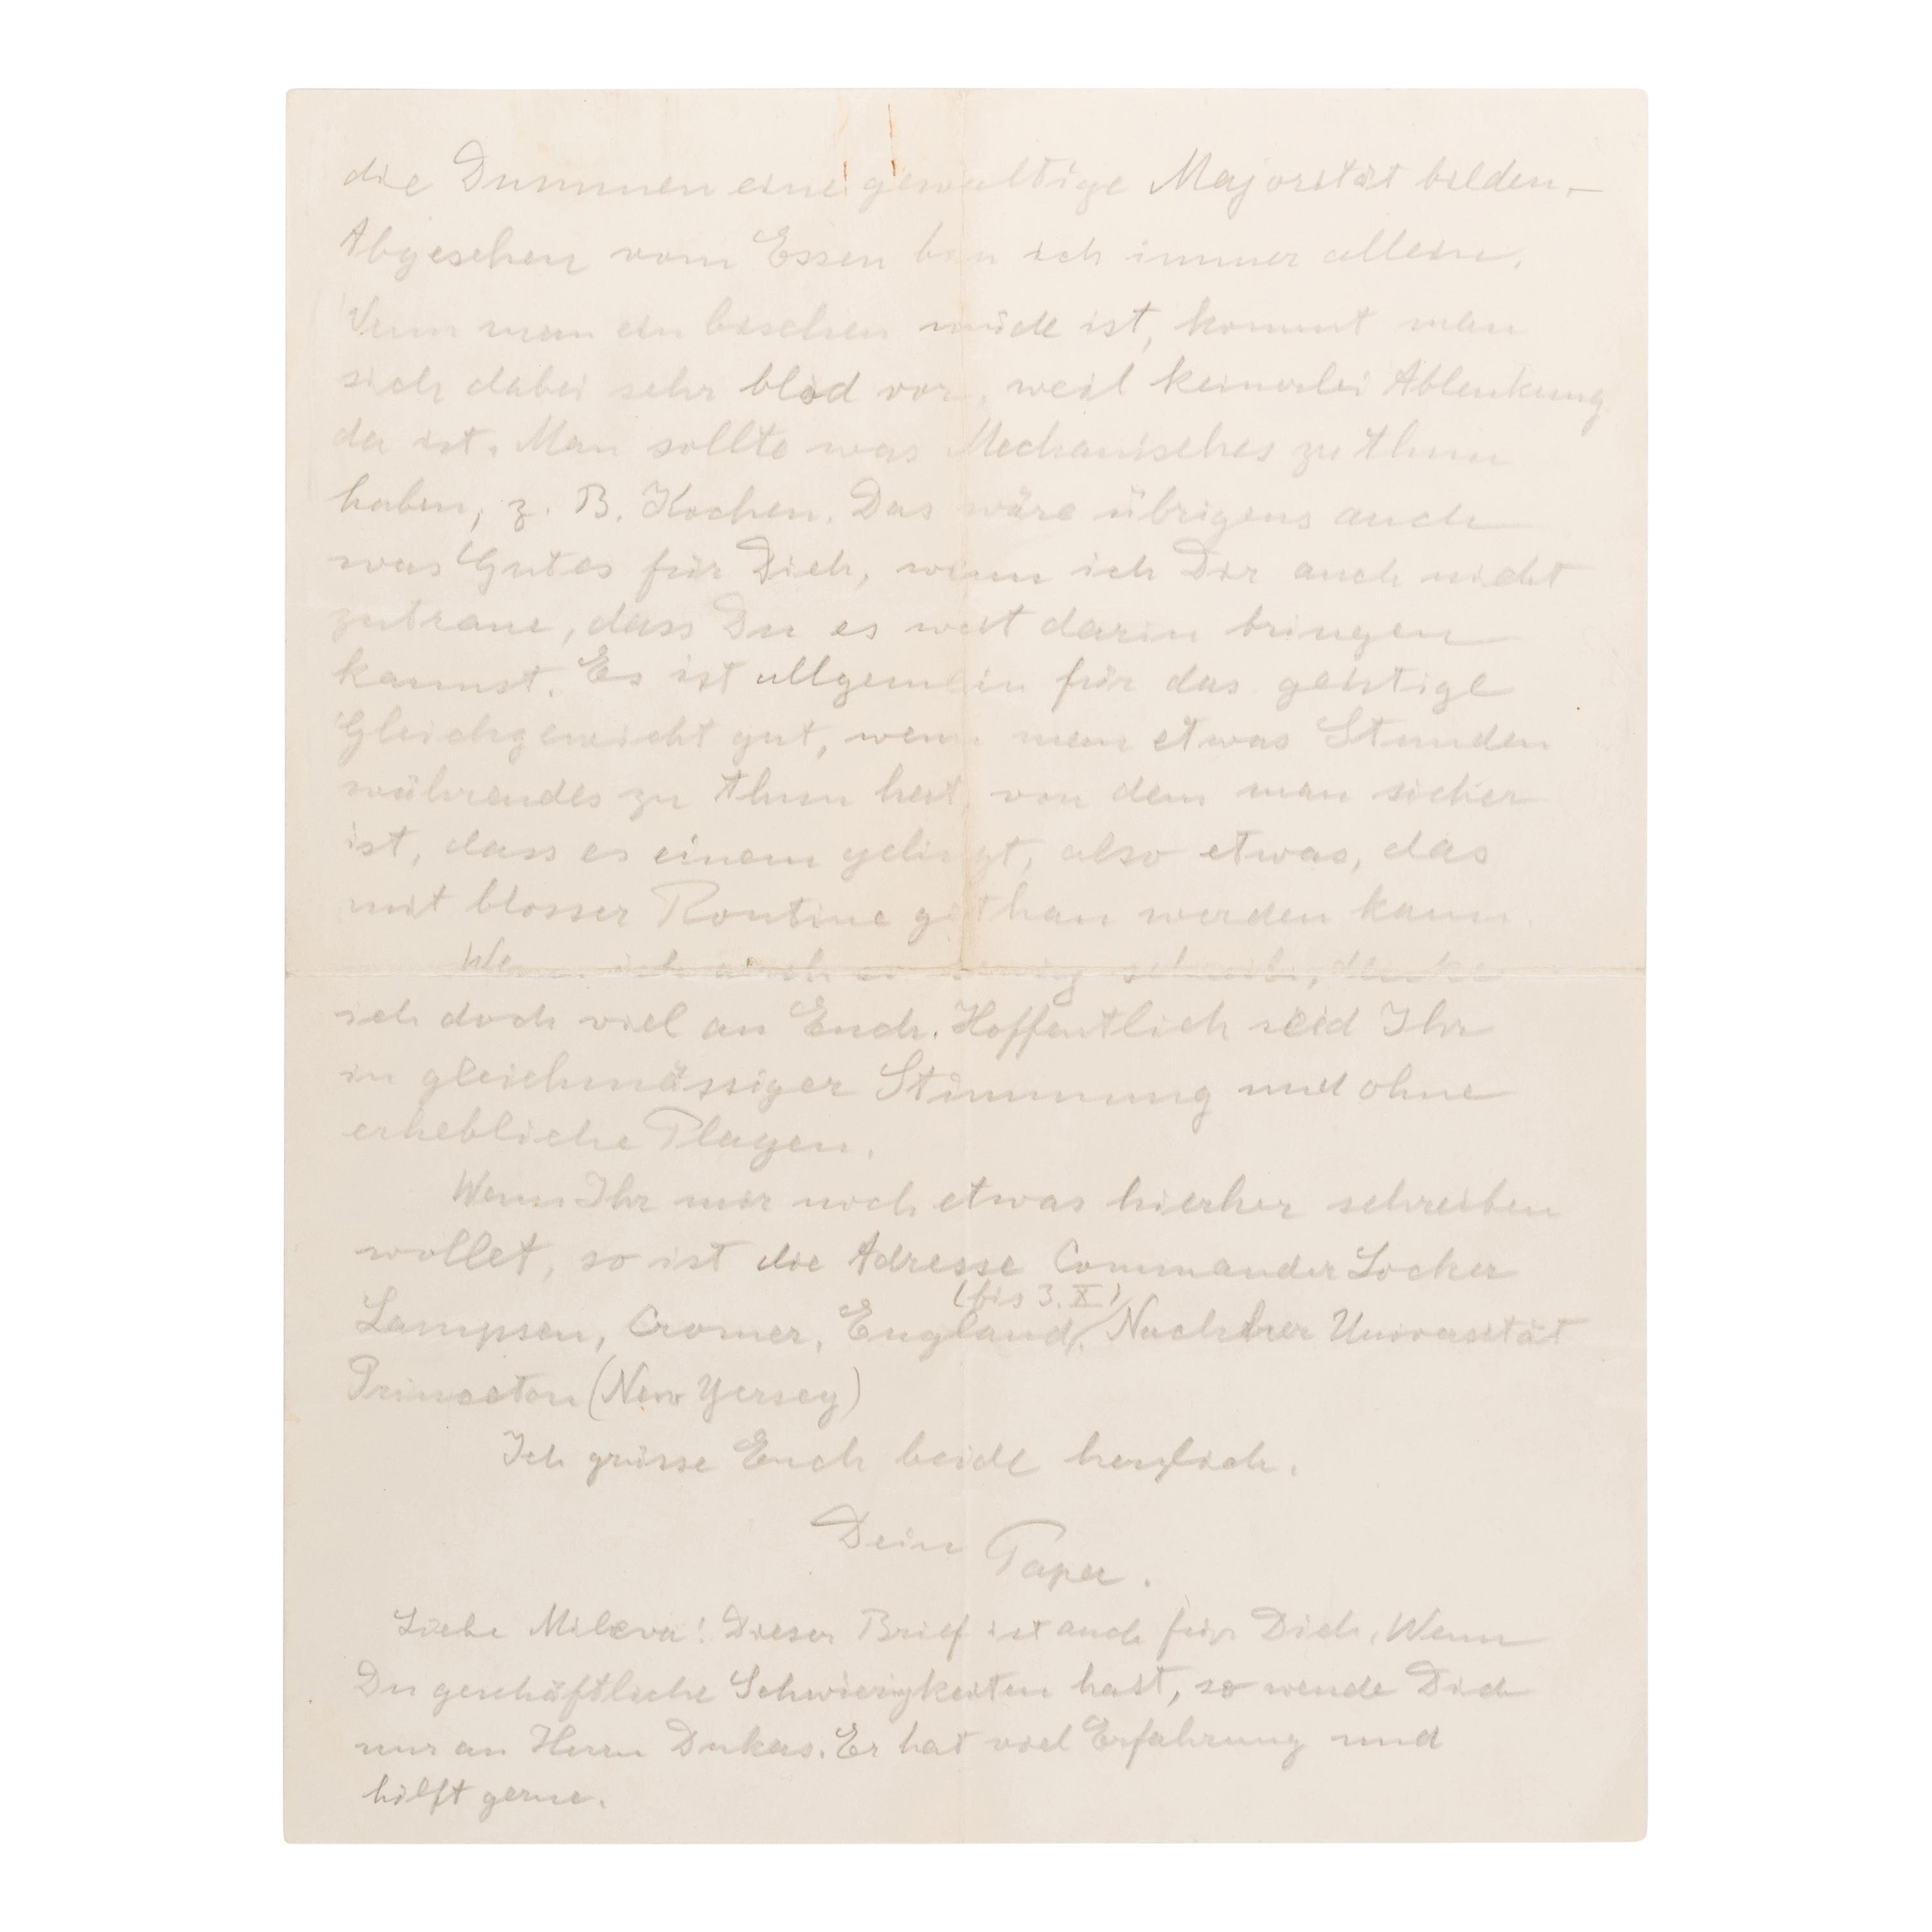 die Dummen eine gewaltige Majorität bilden.—
Abgesehen vom Essen bin ich immer allein.
Wenn man ein bischen müde ist, kommt man
sich dabei sehr blöd vor, weil keinerlei Ablenkung
da ist. Man sollte was Mechanisches zu thun
haben, z. B. Kochen. Das wäre übrigens auch
was Gutes für Dich, wenn ich Dir auch nicht
zutraue, dass Du es weit darin bringen
kannst. Es ist allgemein für das geistige
Gleichgewicht gut, wenn man etwas Stunden
währendes zu thun hat von dem man sicher
ist, dass es einem gelingt, also etwas, das
mit blosser Routine gethan werden kann.
Wenn ich auch so wenig schreibe, denke
ich doch viel an Euch. Hoffentlich seid Ihr
in gleichmässiger Stimmung und ohne
erhebliche Plagen.
Wenn Ihr mir noch etwas hierher schreiben
wollet, so ist die Adresse Commander Locker
Lampsen, Cromer, England (bis 3. X). Nachher Universität
Princeton (New Yersey)
Ich grüsse Euch beide herzlich.
Dein Papa.
Liebe Mileva! Dieser Brief ist auch für Dich. Wenn
Du geschäftliche Schwierigkeiten hast, so wende Dich
nur an Herrn Dukas. Er hat viel Erfahrung und
hilft gerne.